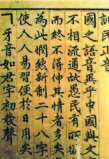 國之語音異乎中國與文
不相流通故愚民有所欲
而終不得伸其情者多矣
為此憫然新制二十八字
使人人易習便於日用矣
ㄱ牙音如君字初發聲